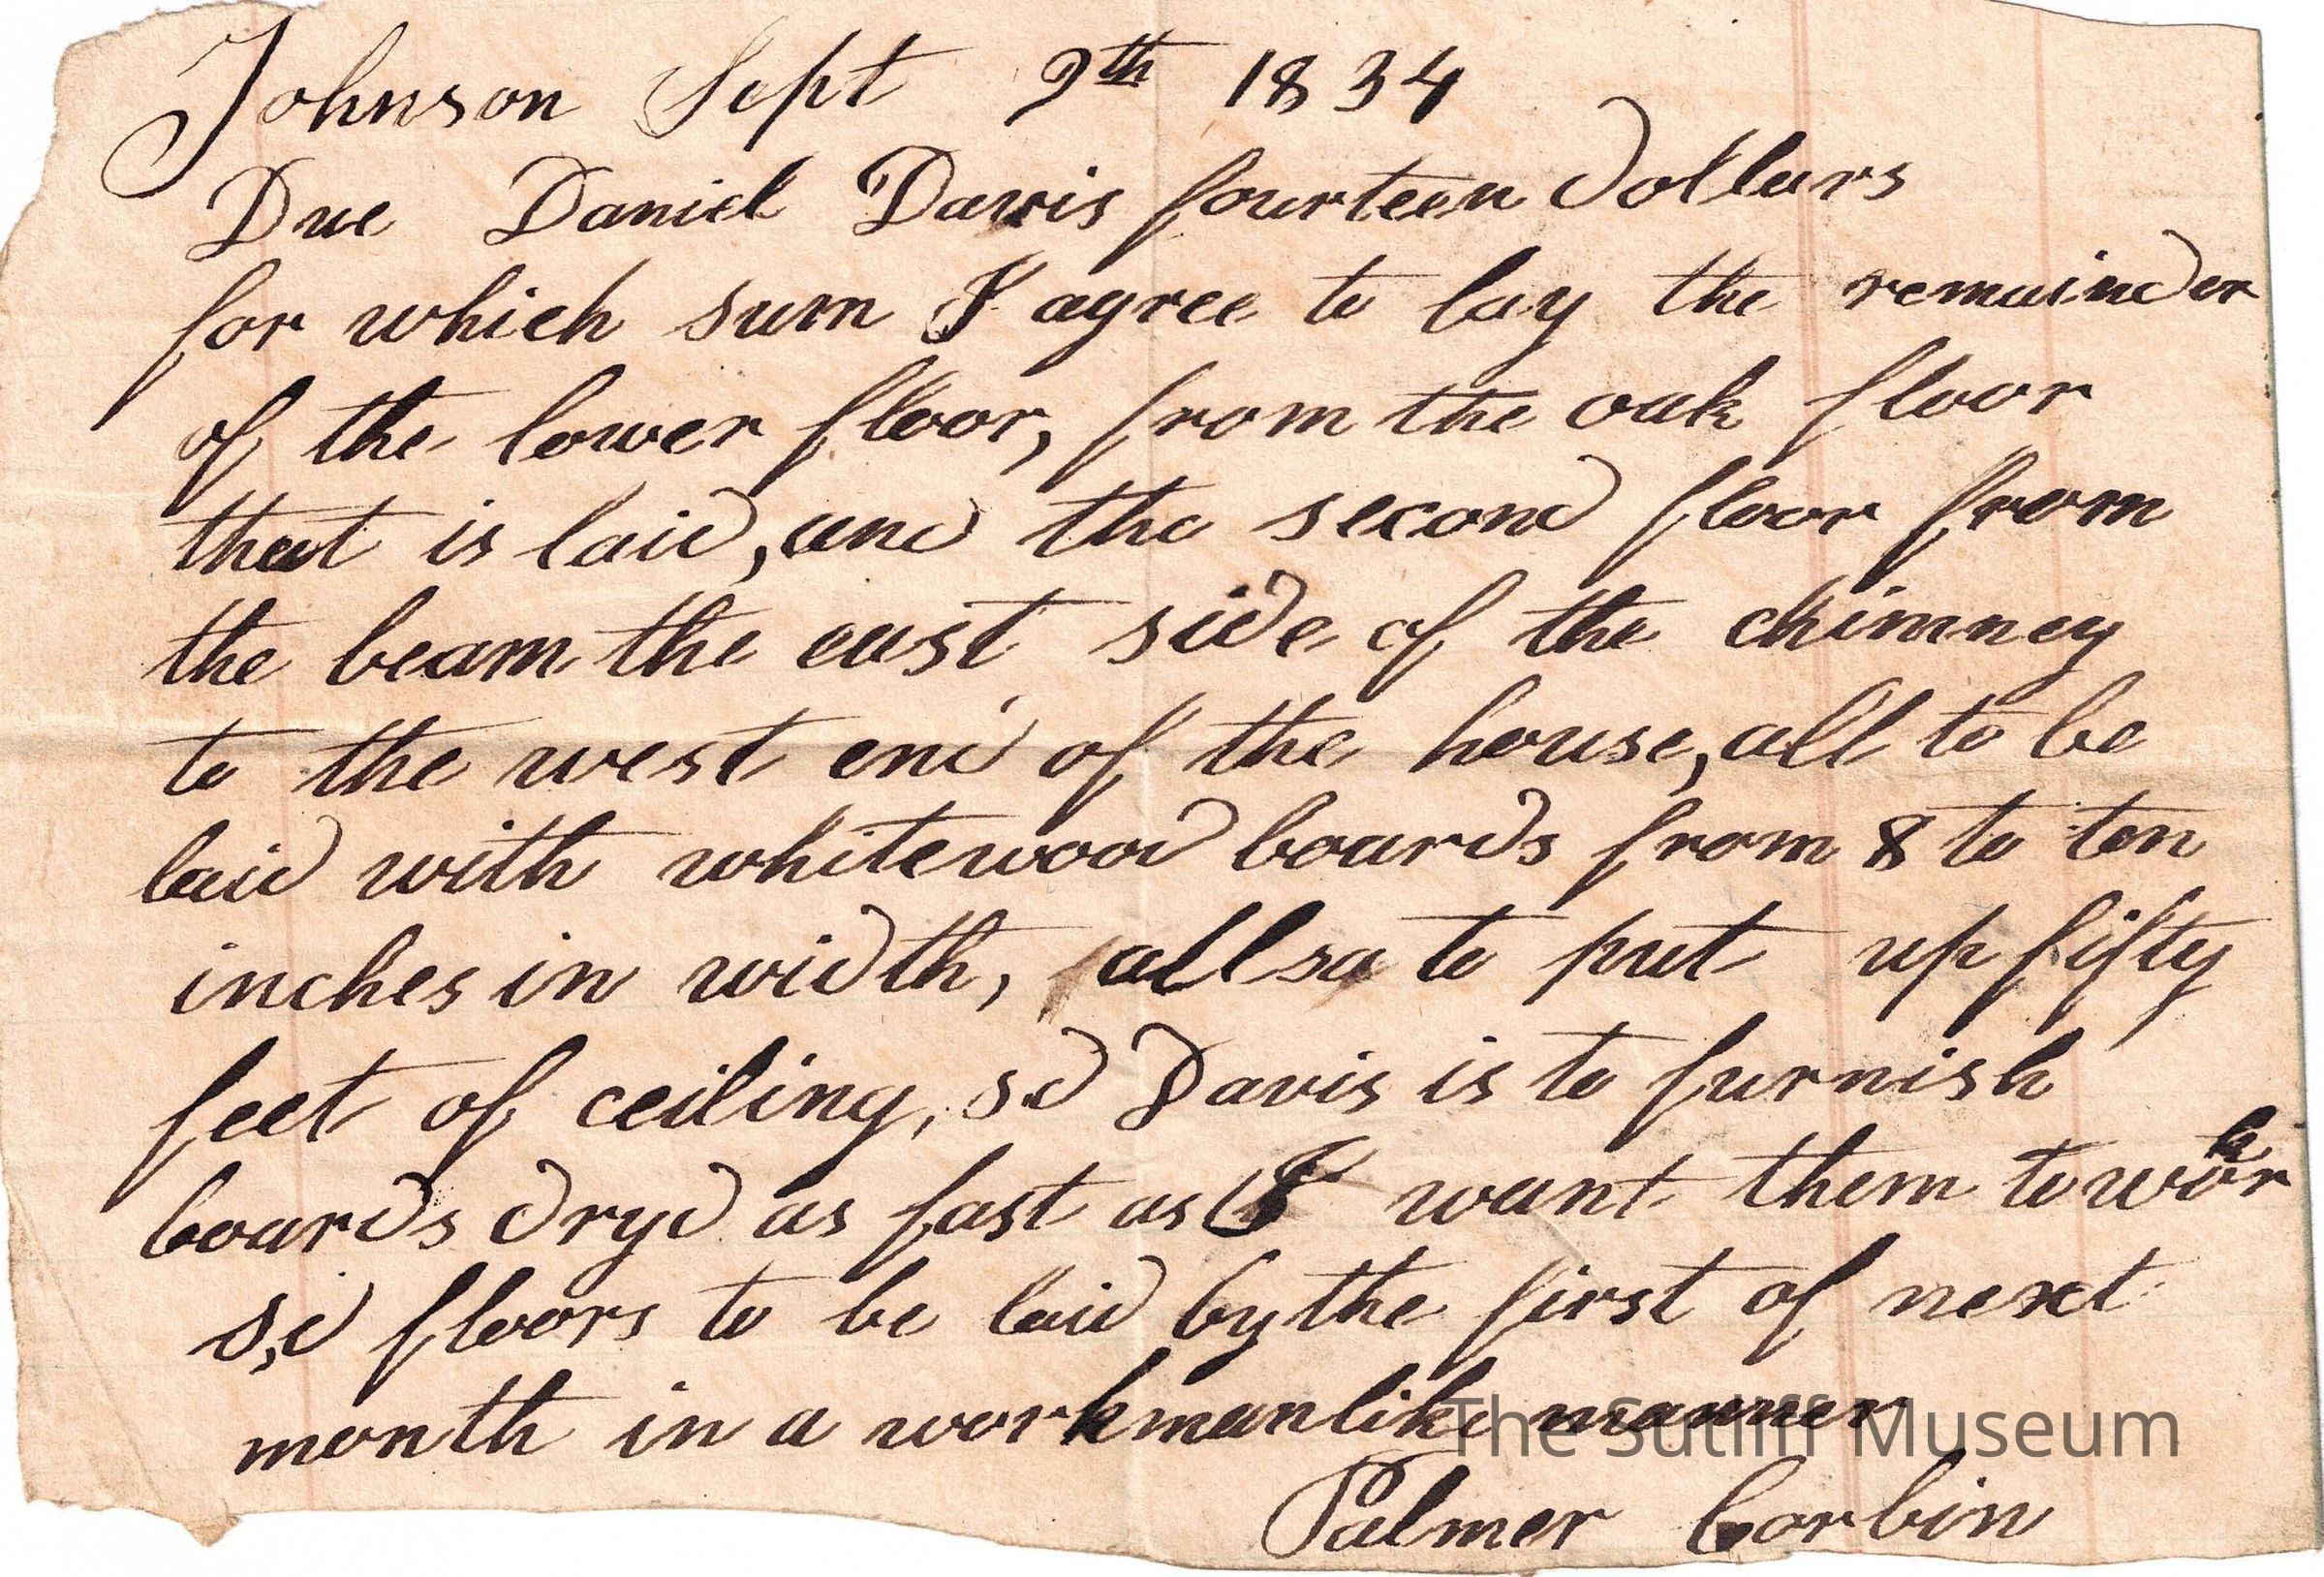 Johnson Sept 9th 1834
Due Daniel Davis fourteen dollars
for which sum I agree to lay the remainder
of the lower floor, from the oak floor
that is laid, and the second floor from
the beam the east side of the chimney
to the west end of the house, all to be
laid with whitewood boards from 8 to ten
inches in width, allso to put up fifty
feet of ceiling, sd Davis is to furnish
boards dryd as fast as I want them to work
s,d floors to be laid by the first of next
month in a workmanlike manner
The Sutliff Museum
Palmer Corbin